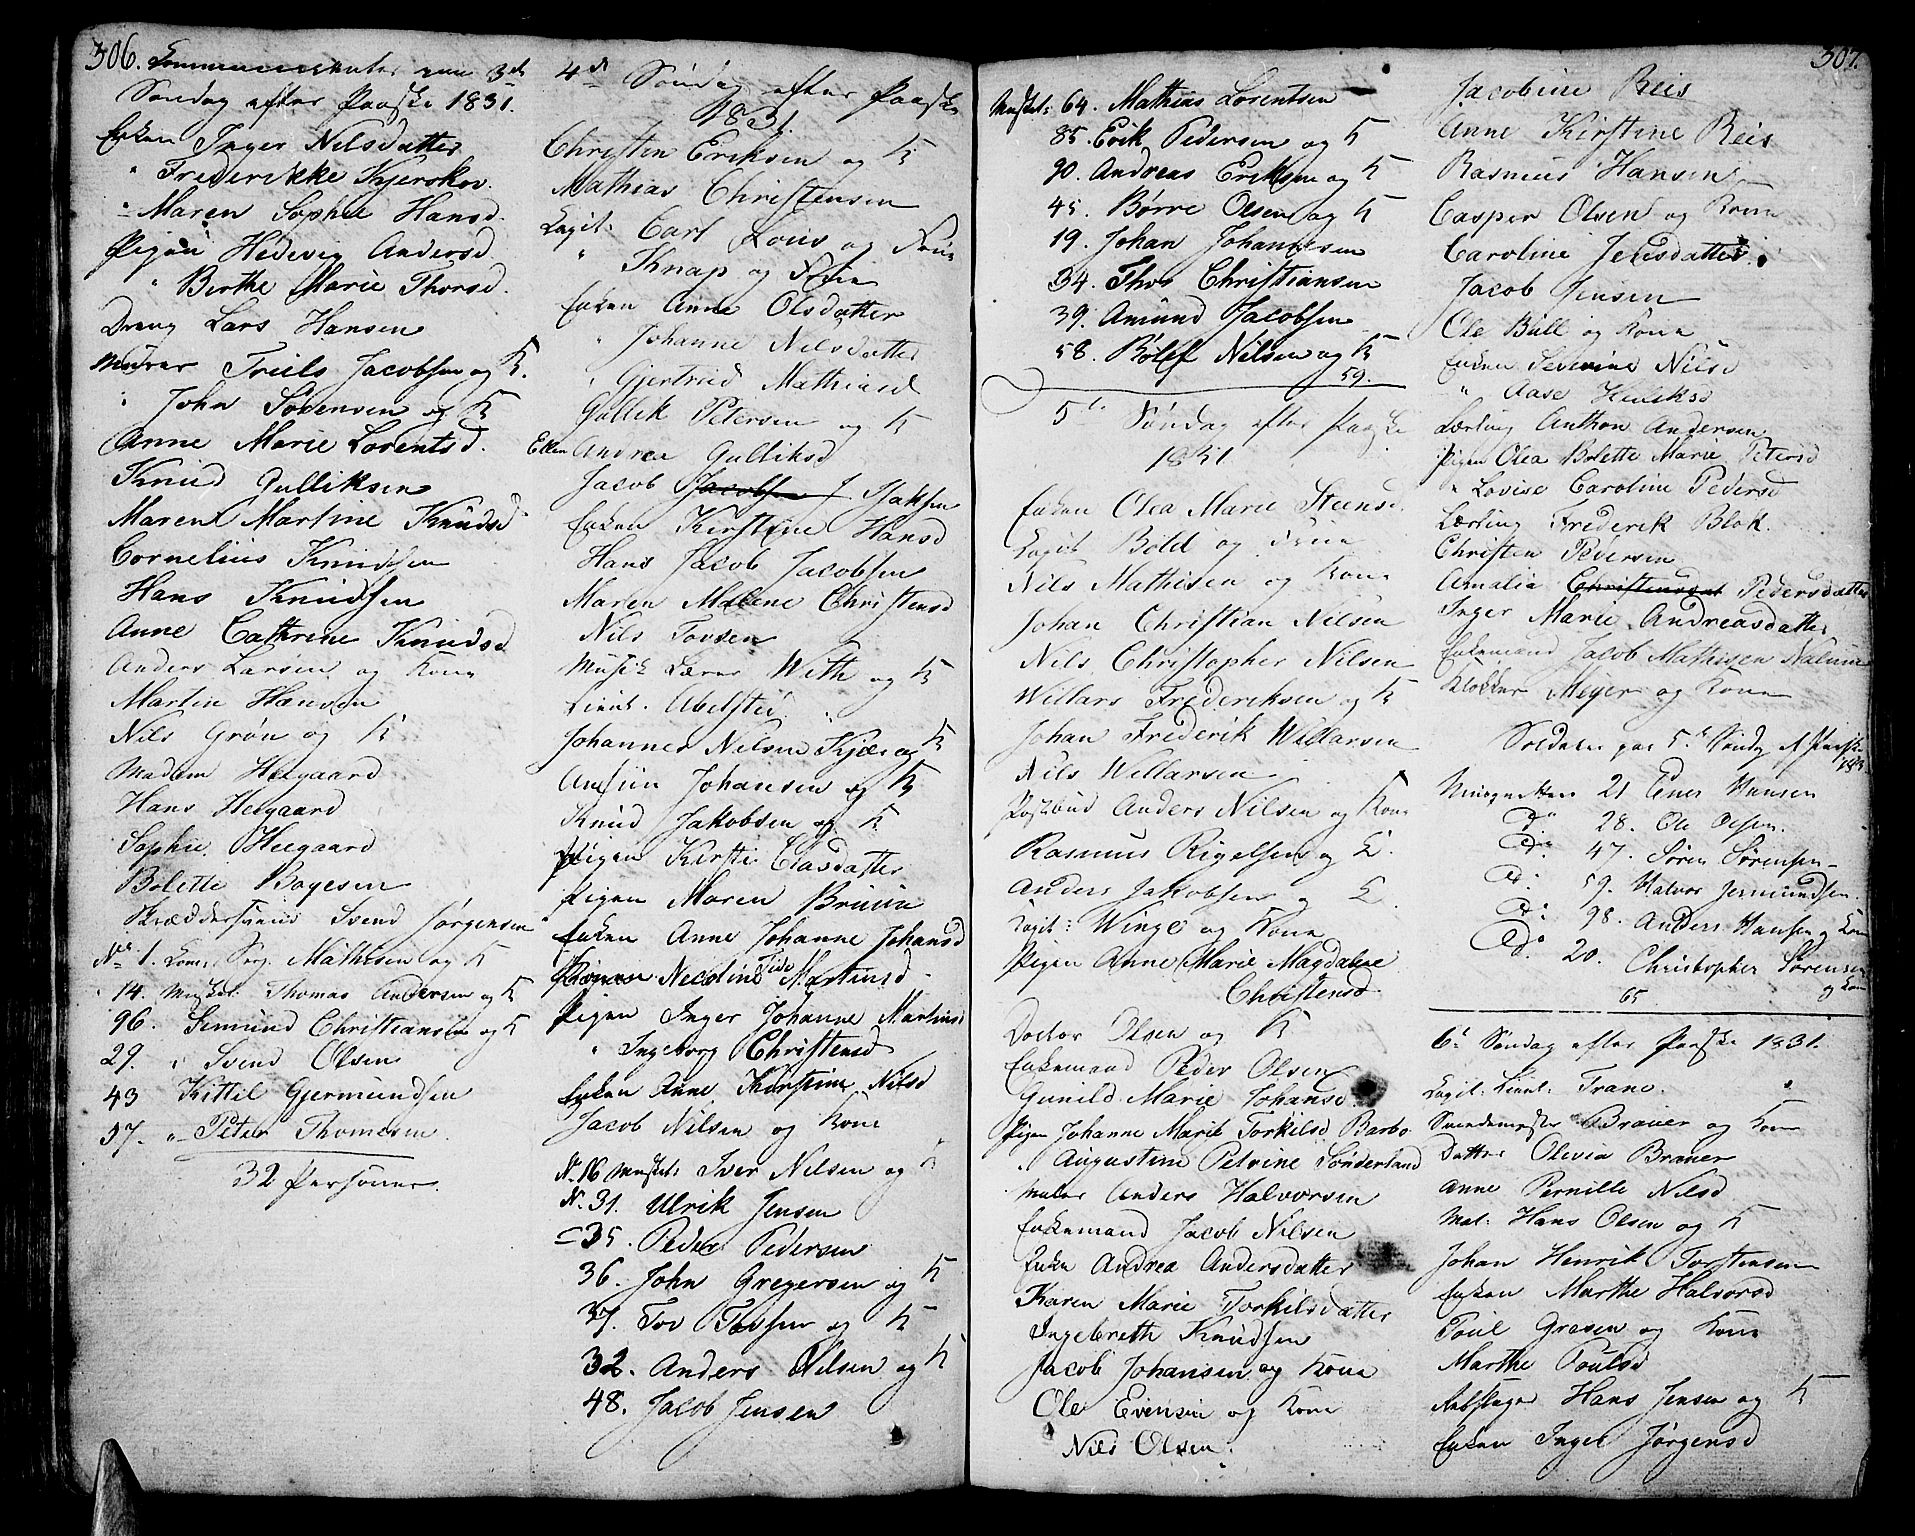 306. Communicanter paa 3de
Søndag efter Paaske 1831.
Enken Inger Nilsdatter
" Frederikke Kjerskov.
" Maren Sophie Hansd.
Pigen Hedevig Andersd
" Birthe Marie Thorsd.
Dreng Lars Hansen
Murer Truls Jacobsen og K.
" John Sørensen og K
Anne Marie Lorentsd.
Knud Gulliksen
Maren Martine Knudsd
Cornelius Knudsen
Hans Knudsen
Anne Cathrine Knudsd
Anders Larsen og Kone
Martin Hansen
Nils Grøn og K
Madam Heegaard
Hans Heegaard
Sophie Heegaard
Bolette Bogesen
Skræddersvend Svend Jørgensen
No 1. Com: Serg. Mathisen og K
14. Musket: Thomas Andersen og K
96. Semund Christiansen og K
29. " Svend Olsen
43 Kittil Gjermundsen
57. " Peter Thomesen.
32 Personer.
4de Søndag efter Paaske
1831.
Christen Eriksen og K
Mathias Christensen
Capit: Carl Louis og Frue
" Knap og Frue
Enken Anne Olsdatter
" Johanne Nilsdatter
" Gjertrud Mathiasd
Gullik Petersen og K
Enken Andrea Gulliksd
Jacob Jacobsen Isaksen
Enken Kirstine Hansd
Hans Jacob Jacobsen
Maren Malene Christensd
Nils Tovsen
Musik Lærer With og K
Lieut. Abelsted
Johannes Nilsen Kjær og K
Johansen og K
Knud Jakobsen og K
Pigen Kirsti Clasdatter
Pigen Maren Bruun
Enken Anne Johanne Johansd
Pigen Nicoline Tide Martinsd
Pigen Inger Johanne Martinsd
" Ingeborg Christensd
Enken Anne Kirstine Nilsd
Jacob Nilsen og Kone
No 16 Musket: Iver Nilsen og K
No. 31. Ulrik Jensen
- 35. Peder Pedersen
36. John Gregersen og K
37. Tov Tovsen og K
32. Anders Nilsen og K
48. Jacob Jensen
307.
Musket: 64. Mathias Lorentsen
85. Erik Pedersen og K
90. Andreas Eriksen og K
45. Børre Olsen og K
19. Johan Johannesen
34. Thov Christiansen
39. Amund Jacobsen
58. Rolef Nilsen og K
59.
5te Søndag efter Paaske
1831
Enken Olea Marie Steensd
Capit Bold og Frue
Nils Mathisen og Kone
Johan Christian Nilsen
Nils Christopher Nilsen
Willars Frederiksen og K
Johan Frederik Willarsen
Nils Willarsen
Postbud Anders Nilsen og Kone
Rasmus Rigelsen og K.
Anders Jakobsen og K.
Capit: Winge og Kone
Pigen Anne Marie Magdalene
Christensd
Doctor Olsen og K
Enkemand Peder Olsen
Gunild Marie Johansd
Pigen Johanne Marie Torkilsd Barbo
" Augustine Petrine Sønderland
Maler Anders Halvorsen
Enkemand Jacob Nilsen
Enken Andrea Andersdatter
Karen Marie Torkilsdatter
Ingebreth Knudsen
Jacob Johansen og Kone
Ole Evensen og Kone
Nils Olsen.
Jacobine Reis
Anne Kirstine Reis
Rasmus Hansen
Casper Olsen og Kone
Caroline Jensdatter
Jacob Jensen
Ole Bull og Kone
Enken Severine Nilsd
" Aase Henriksd
Lærling Anthon Andersen
Pigen Olea Bolette Marie Petersd
" Lovise Caroline Pedersd
Lærling Frederik Blok.
Christen Pedersen
Amalia Christensdat Pedersdatter
Inger Marie Andreasdatter
Enkemand Jacob Mathisen
Klokker Meyer og Kone
Soldater paa 5te Søndag ef Paaske
1831
Musquetteer 21 Einer Hansen
Do 28. Ole Olsen.
Do 47. Søren Sørensen
Do 59. Halvor Jermundsen.
Do 98. Anders Hansen og Kone
Do 20. Christopher Sørensen
og Kone
65
6te Søndag efter Paaske 1831.
Capit: Lieut: Trane.
Brauer og Kone
Datter Olevia Brauer
Anne Pernille Nilsd
Mat: Hans Olsen og K
Johan Henrik Torstensen
Enken Marthe Halvorsd
Poul Gresen og Kone
Marthe Poulsd
Hans Jensen og K
Enken Inger Jørgensd